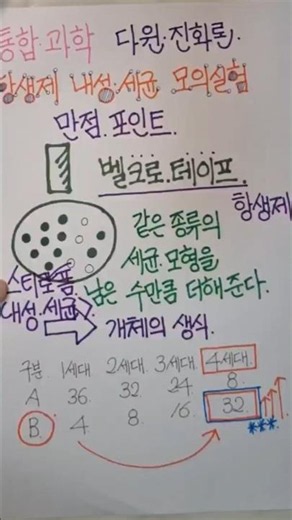 통합·과학 다윈·진화론.
항생제 내성·세균 모의실험
만점.포인트.
벨크로.테이프.
항생제
같은 종류의
세균.모형을
스티로폼 남은 수만큼 더해준다.
내성·세균
개체의 생식.
구분 1세대 2세대. 3세대. 4세대.
A 36. 32 24 8.
B. 4 8. 16 32.
***.